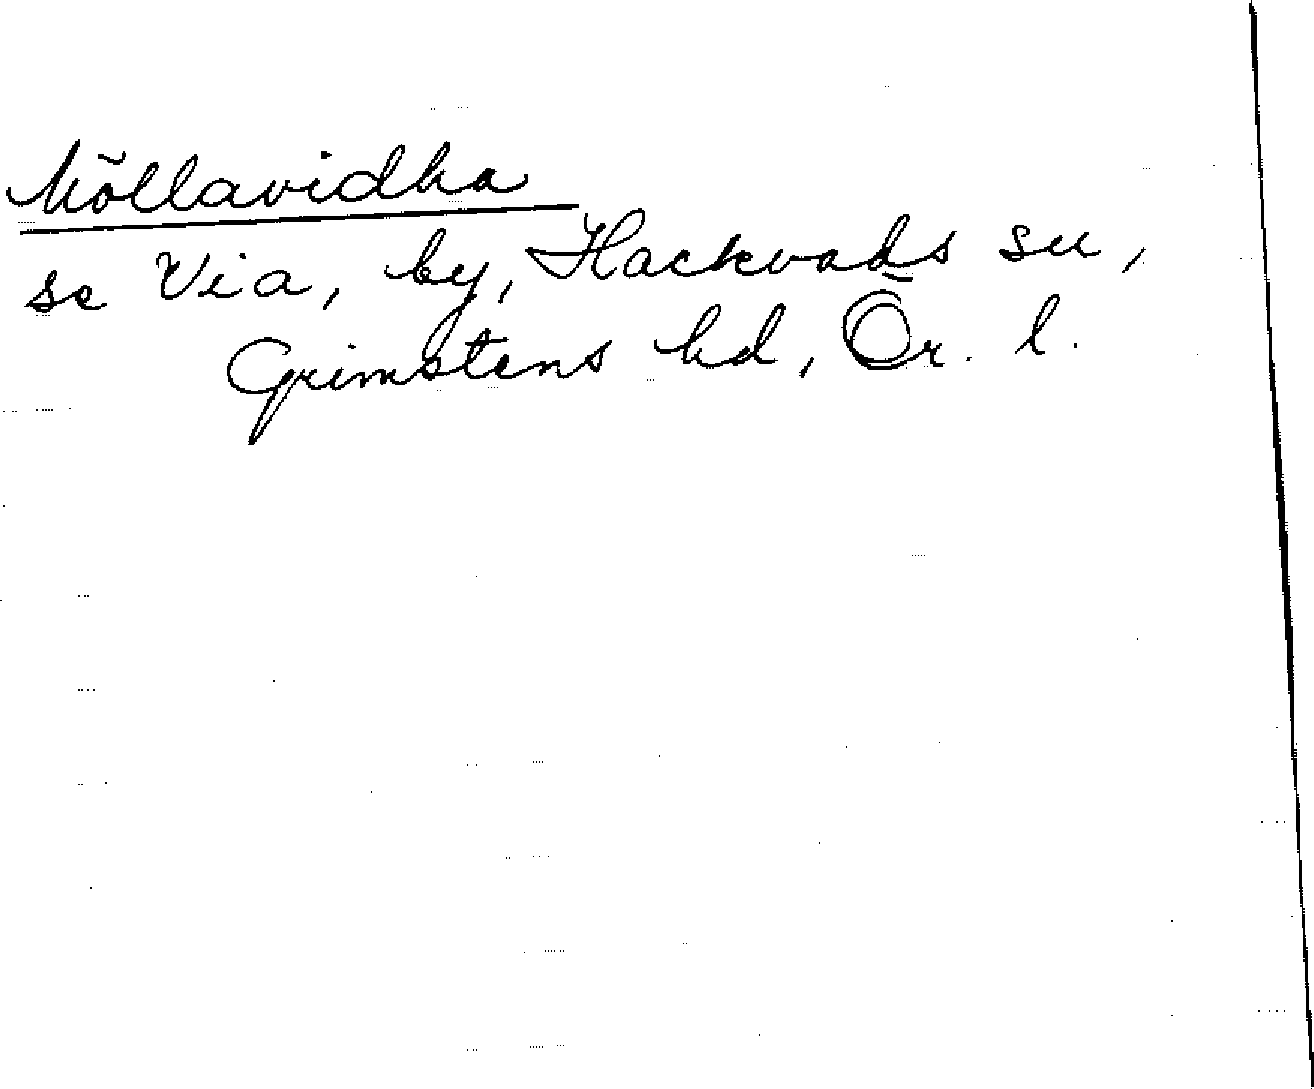 Möllavidha
se Via, by, Hackvads sn,
Grimstens hd, Ör. l.